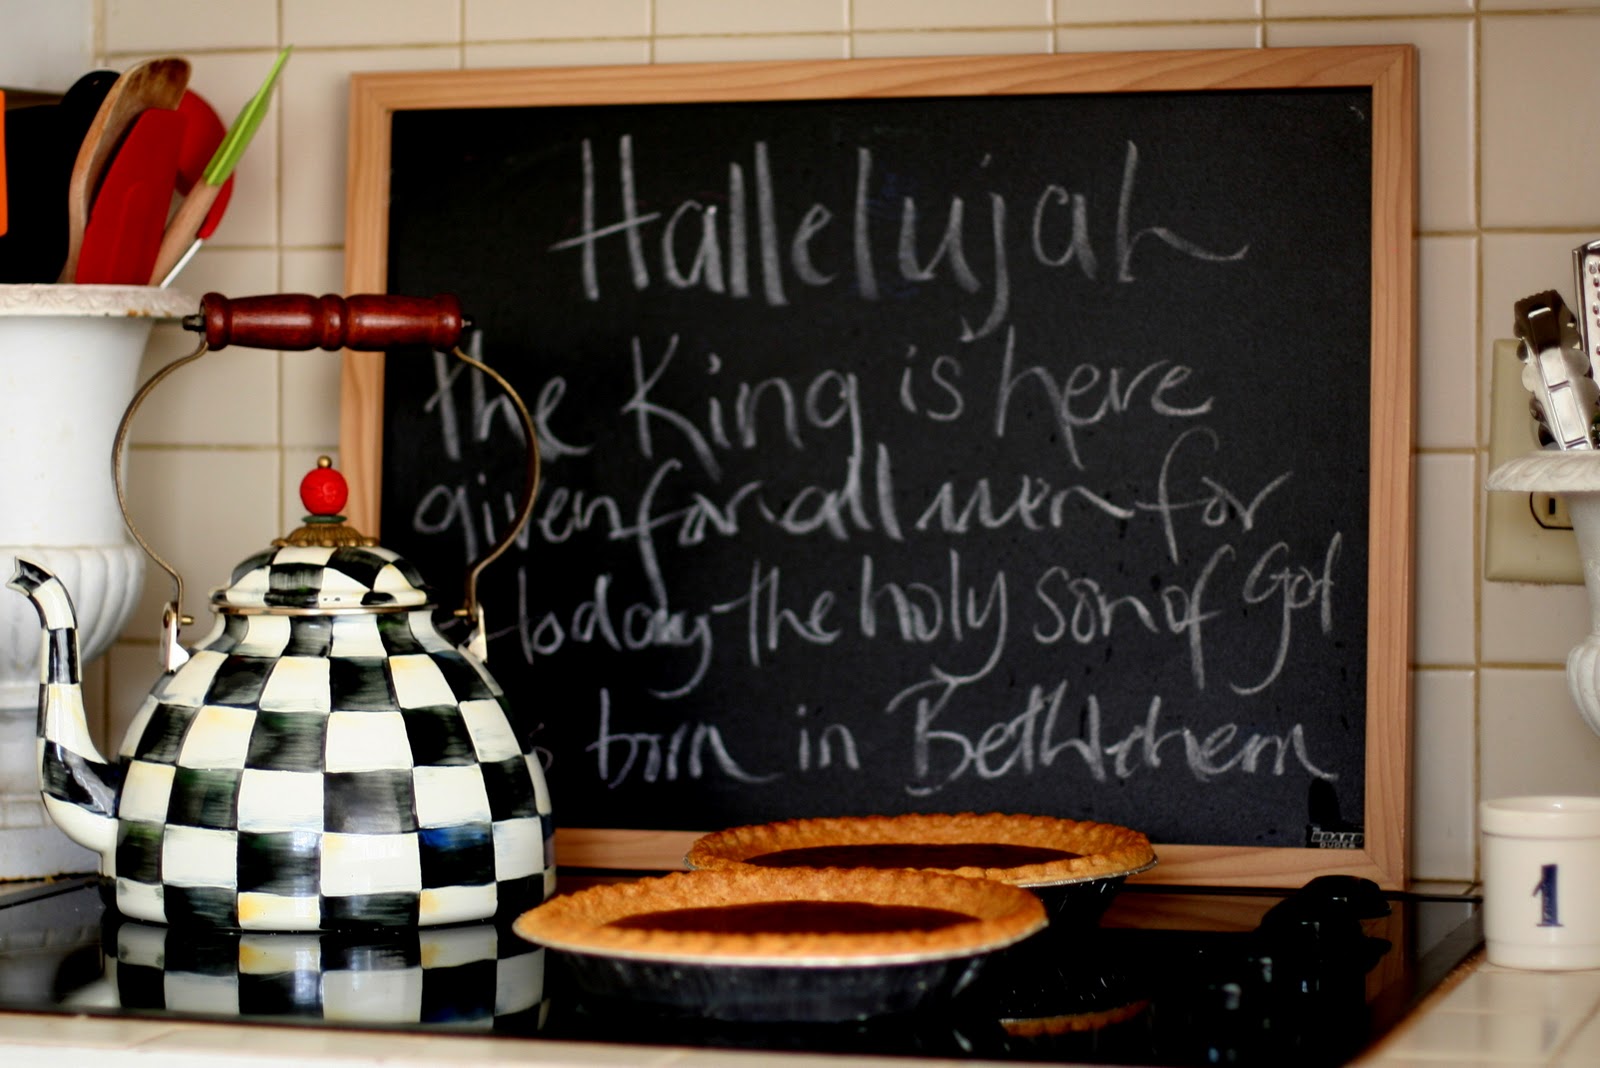 Hallelujah
the King is here
given for all men for
today the holy son of God
is born in Bethlehem
BOARD
DUDES
1